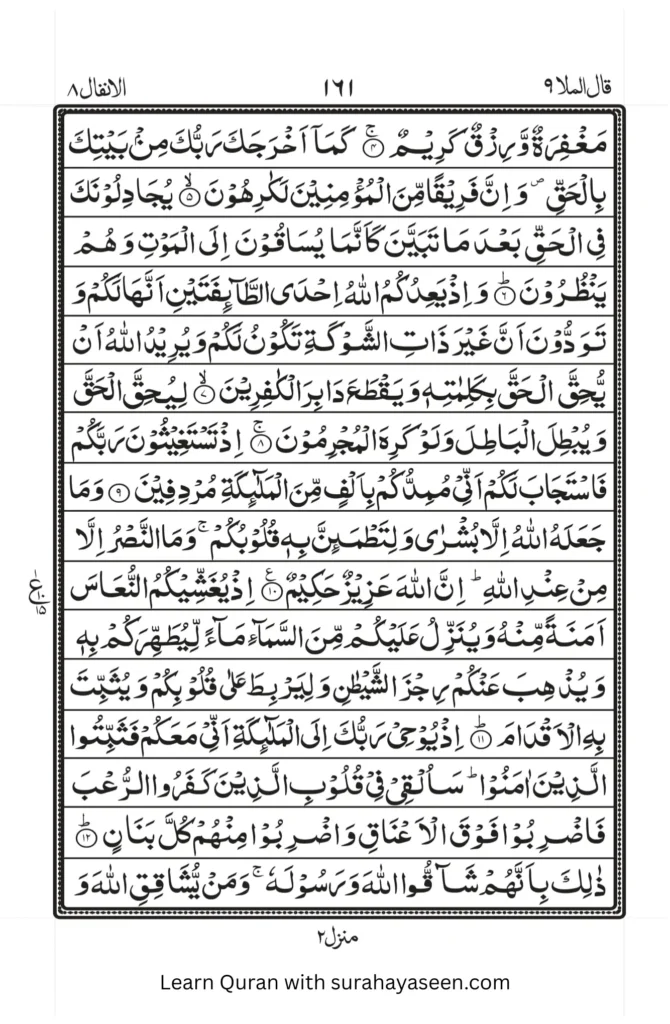 قال الملا ٩ ١٦١ الانفال ٨
مَغْفِرَةٌ وَّرِزْقٌ كَرِيْمٌ ۚ‏﴿۴﴾ كَمَاۤ اَخْرَجَكَ رَبُّكَ مِنْۢ بَيْتِكَ
بِالْحَقِّ ۪ وَاِنَّ فَرِيْقًا مِّنَ الْمُؤْمِنِيْنَ لَكٰرِهُوْنَ ۙ‏﴿۵﴾ يُجَادِلُوْنَكَ
فِى الْحَقِّ بَعْدَ مَا تَبَيَّنَ كَاَنَّمَا يُسَاقُوْنَ اِلَى الْمَوْتِ وَهُمْ
يَنْظُرُوْنَ ؕ‏﴿۶﴾ وَاِذْ يَعِدُكُمُ اللّٰهُ اِحْدَى الطَّآٮِٕفَتَيْنِ اَنَّهَا لَكُمْ وَ
تَوَدُّوْنَ اَنَّ غَيْرَ ذَاتِ الشَّوْكَةِ تَكُوْنُ لَكُمْ وَيُرِيْدُ اللّٰهُ اَنْ
يُّحِقَّ الْحَقَّ بِكَلِمٰتِهٖ وَيَقْطَعَ دَابِرَ الْكٰفِرِيْنَ ۙ‏﴿۷﴾ لِيُحِقَّ الْحَقَّ
وَيُبْطِلَ الْبَاطِلَ وَلَوْ كَرِهَ الْمُجْرِمُوْنَ ۚ‏﴿۸﴾ اِذْ تَسْتَغِيْثُوْنَ رَبَّكُمْ
فَاسْتَجَابَ لَكُمْ اَنِّىْ مُمِدُّكُمْ بِاَلْفٍ مِّنَ الْمَلٰٓٮِٕكَةِ مُرْدِفِيْنَ ‏﴿۹﴾ وَمَا
جَعَلَهُ اللّٰهُ اِلَّا بُشْرٰى وَلِتَطْمَٮِٕنَّ بِهٖ قُلُوْبُكُمْ ۚ وَمَا النَّصْرُ اِلَّا
مِنْ عِنْدِ اللّٰهِ ؕ اِنَّ اللّٰهَ عَزِيْزٌ حَكِيْمٌ ‏﴿۱۰﴾ اِذْ يُغَشِّيْكُمُ النُّعَاسَ
اَمَنَةً مِّنْهُ وَيُنَزِّلُ عَلَيْكُمْ مِّنَ السَّمَآءِ مَآءً لِّيُطَهِّرَكُمْ بِهٖ
وَيُذْهِبَ عَنْكُمْ رِجْزَ الشَّيْطٰنِ وَلِيَرْبِطَ عَلٰى قُلُوْبِكُمْ وَيُثَبِّتَ
بِهِ الْاَقْدَامَ ؕ‏﴿۱۱﴾ اِذْ يُوْحِىْ رَبُّكَ اِلَى الْمَلٰٓٮِٕكَةِ اَنِّىْ مَعَكُمْ فَثَبِّتُوا
الَّذِيْنَ اٰمَنُوْا ؕ سَاُلْقِىْ فِىْ قُلُوْبِ الَّذِيْنَ كَفَرُوا الرُّعْبَ
فَاضْرِبُوْا فَوْقَ الْاَعْنَاقِ وَاضْرِبُوْا مِنْهُمْ كُلَّ بَنَانٍ ؕ‏﴿۱۲﴾
ذٰلِكَ بِاَنَّهُمْ شَآقُّوا اللّٰهَ وَرَسُوْلَهٗ ۚ وَمَنْ يُّشَاقِقِ اللّٰهَ وَ
منزل ٢
Learn Quran with surahayaseen.com